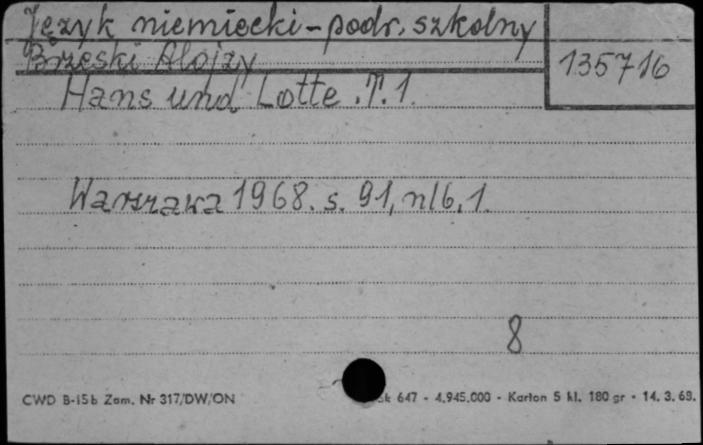 Język niemiecki - podr. szkolny
135716
Brzeski Alojzy
Hans und Lotte. T. 1.
Warszawa 1968. s. 91, nlb. 1.
8
CWD B-15b Zam. Nr 317/DW/ON 647 - 4.945.000 - Karton 5 kl. 180 gr - 14. 3. 69.